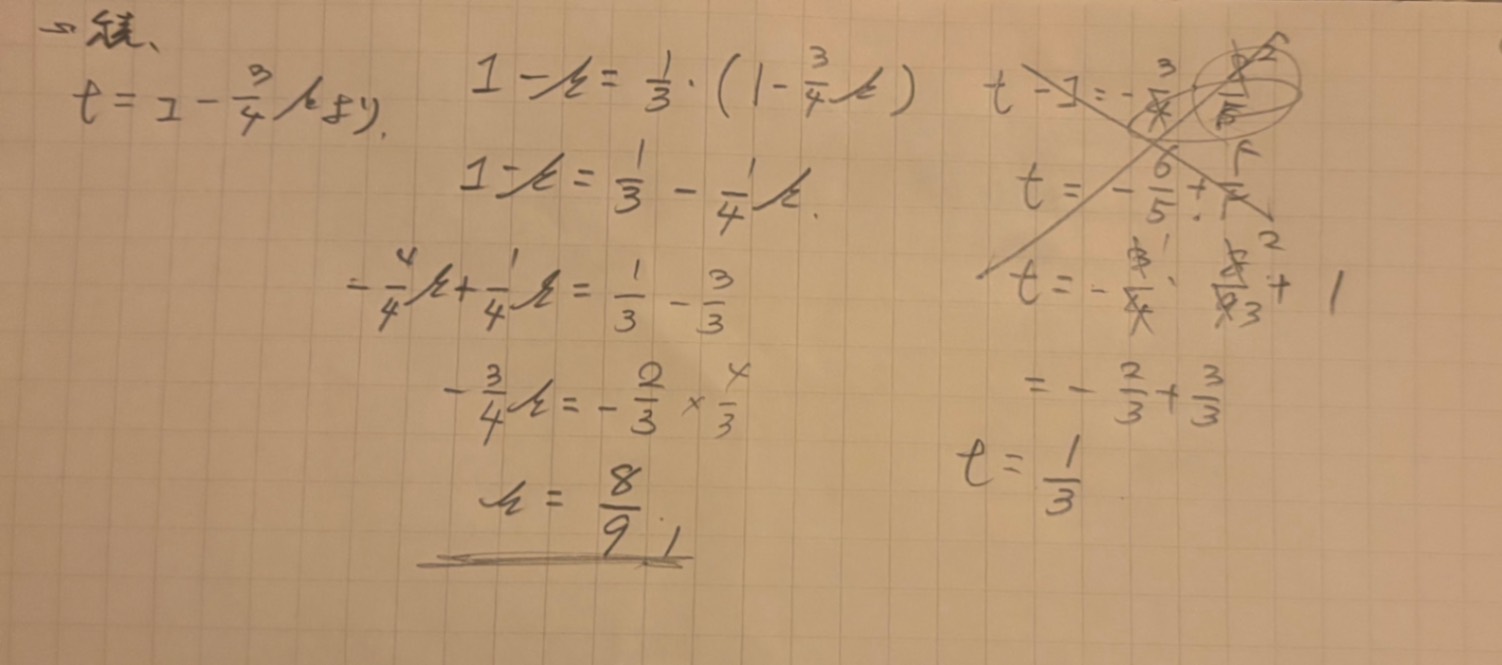 →続、
t = 1 - 3/4 k より.
1 - k = 1/3 · (1 - 3/4 k)
1 - k = 1/3 - 1/4 k.
- 4/4 k + 1/4 k = 1/3 - 3/3
- 3/4 k = - 2/3 × 4/3
k = 8/9
t - 1 = - 3/4
t = - 6/5 +
t = - 3/4 · 8/9 + 1
1 2 3
= - 2/3 + 3/3
t = 1/3